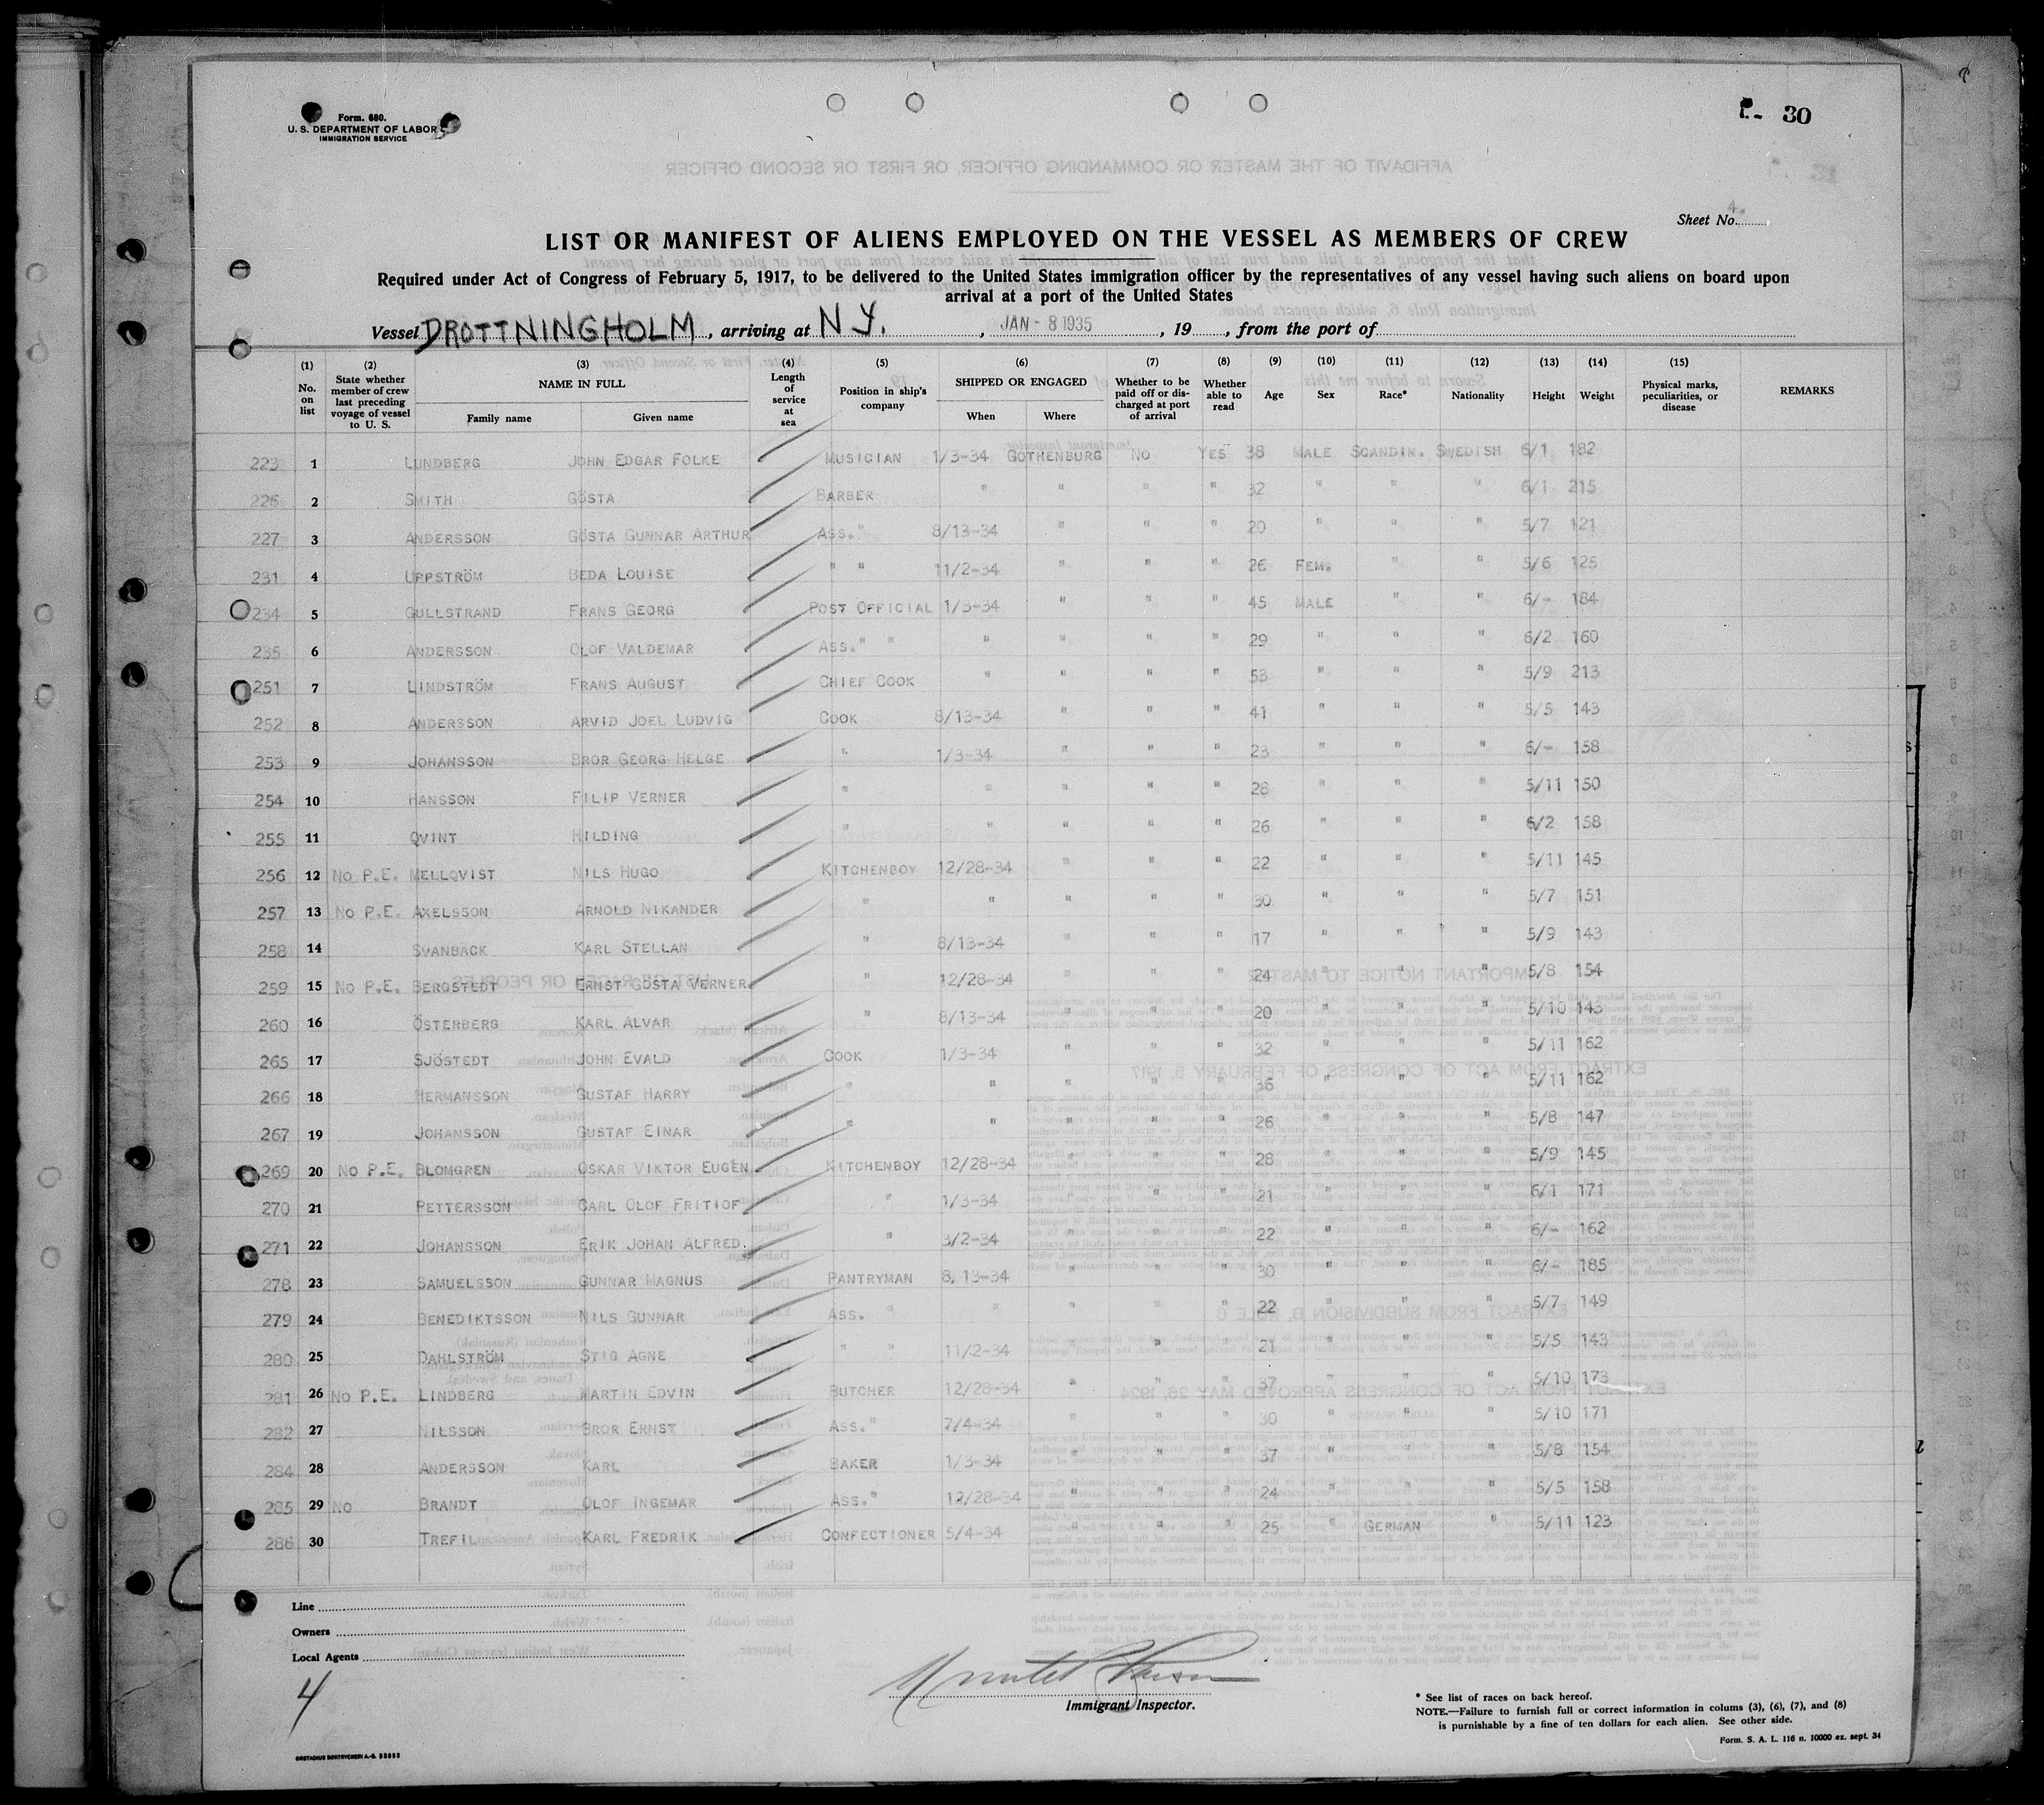 P.- 30
Form. 680.
U. S. DEPARTMENT OF LABOR
IMMIGRATION SERVICE
Sheet No. 4.
LIST OR MANIFEST OF ALIENS EMPLOYED ON THE VESSEL AS MEMBERS OF CREW
Required under Act of Congress of February 5, 1917, to be delivered to the United States immigration officer by the representatives of any vessel having such aliens on board upon
arrival at a port of the United States
Vessel DROTTNINGHOLM, arriving at N Y. , JAN - 8 1935 , 19 , from the port of
(1) (2) (3) (4) (5) (6) (7) (8) (9) (10) (11) (12) (13) (14) (15)
No. on list State whether member of crew last preceding voyage of vessel to U. S. NAME IN FULL Family name Given name Length of service at sea Position in ship's company SHIPPED OR ENGAGED When Where Whether to be paid off or discharged at port of arrival Whether able to read Age Sex Race* Nationality Height Weight Physical marks, peculiarities, or disease REMARKS
223 1 LUNDBERG JOHN EDGAR FOLKE MUSICIAN 1/3-34 GOTHENBURG NO YES 38 MALE SCANDIN. SWEDISH 6/1 182
226 2 SMITH GÖSTA BARBER " " " " 32 " " " 6/1 215
227 3 ANDERSSON GÖSTA GUNNAR ARTHUR ASS. " 8/13-34 " " " 20 " " " 5/7 121
231 4 UPPSTRÖM BEDA LOUISE " " 11/2-34 " " " 26 FEM. " " 5/6 125
234 5 GULLSTRAND FRANS GEORG POST OFFICIAL 1/3-34 " " " 45 MALE " " 6/- 184
235 6 ANDERSSON OLOF VALDEMAR ASS. " " " " " " 29 " " " 6/2 160
251 7 LINDSTRÖM FRANS AUGUST CHIEF COOK " " " " 53 " " " 5/9 213
252 8 ANDERSSON ARVID JOEL LUDVIG COOK 8/13-34 " " " 41 " " " 5/5 143
253 9 JOHANSSON BROR GEORG HELGE " 1/3-34 " " " 23 " " " 6/- 158
254 10 HANSSON FILIP VERNER " " " " " 28 " " " 5/11 150
255 11 QVINT HILDING " " " " " 26 " " " 6/2 158
256 12 NO P.E. MELLQVIST NILS HUGO KITCHENBOY 12/28-34 " " " 22 " " " 5/11 145
257 13 NO P.E. AXELSSON ARNOLD NIKANDER " " " " " 30 " " " 5/7 151
258 14 SVANBÄCK KARL STELLAN " 8/13-34 " " " 17 " " " 5/9 143
259 15 NO P.E. BERGSTEDT ERNST GÖSTA VERNER " 12/28-34 " " " 24 " " " 5/8 154
260 16 ÖSTERBERG KARL ALVAR " 8/13-34 " " " 20 " " " 5/10 143
265 17 SJÖSTEDT JOHN EVALD COOK 1/3-34 " " " 32 " " " 5/11 162
266 18 HERMANSSON GUSTAF HARRY " " " " " 36 " " " 5/11 162
267 19 JOHANSSON GUSTAF EINAR " " " " " 26 " " " 5/8 147
269 20 NO P.E. BLOMGREN OSKAR VIKTOR EUGEN KITCHENBOY 12/28-34 " " " 28 " " " 5/9 145
270 21 PETTERSSON CARL OLOF FRITIOF " 1/3-34 " " " 21 " " " 6/1 171
271 22 JOHANSSON ERIK JOHAN ALFRED. " 3/2-34 " " " 22 " " " 6/- 162
278 23 SAMUELSSON GUNNAR MAGNUS PANTRYMAN 8/13-34 " " " 30 " " " 6/- 185
279 24 BENEDIKTSSON NILS GUNNAR ASS. " " " " " 22 " " " 5/7 149
280 25 DAHLSTRÖM STIG AGNE " " 11/2-34 " " " 21 " " " 5/5 143
281 26 NO P.E. LINDBERG MARTIN EDVIN BUTCHER 12/28-34 " " " 37 " " " 5/10 173
282 27 NILSSON BROR ERNST ASS. " 7/4-34 " " " 30 " " " 5/10 171
284 28 ANDERSSON KARL BAKER 1/3-34 " " " 37 " " " 5/8 154
285 29 NO BRANDT OLOF INGEMAR ASS. " 12/28-34 " " " 24 " " " 5/5 158
286 30 TREFIL KARL FREDRIK CONFECTIONER 5/4-34 " " " 25 " GERMAN " 5/11 123
Line
Owners
Local Agents
4
Immigrant Inspector.
* See list of races on back hereof.
NOTE.—Failure to furnish full or correct information in colums (3), (6), (7), and (8)
is punishable by a fine of ten dollars for each alien. See other side.
Form. S. A. L. 116 n. 10000 ex. sept. 34